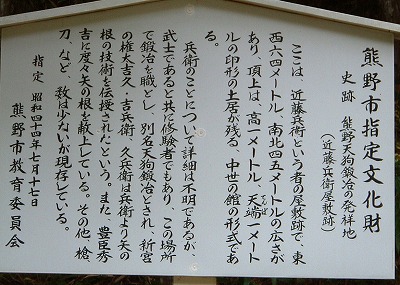 熊野市指定文化財
史跡 熊野天狗鍛冶の発祥地
(近藤兵衛屋敷跡)
ここは、近藤兵衛という者の屋敷跡で、東
西六四メートル、南北四五メートルの広さが
あり、頂上は、高一メートル、天端一メート
ルの印形の土居が残る、中世の館の形式であ
る。
兵衛のことについて詳細は不明であるが、
武士であると共に修験者でもあり、この場所
で鍛冶を職とし、別名天狗鍛冶とされ、新宮
の権太吉久、吉兵衛、久兵衛は兵衛より矢の
根の技術を伝授されたという。また、豊臣秀
吉に度々矢の根を献上している。その他、槍、
刀、など、数は少ないが現存している。
指定 昭和四十四年七月十七日
熊野市教育委員会